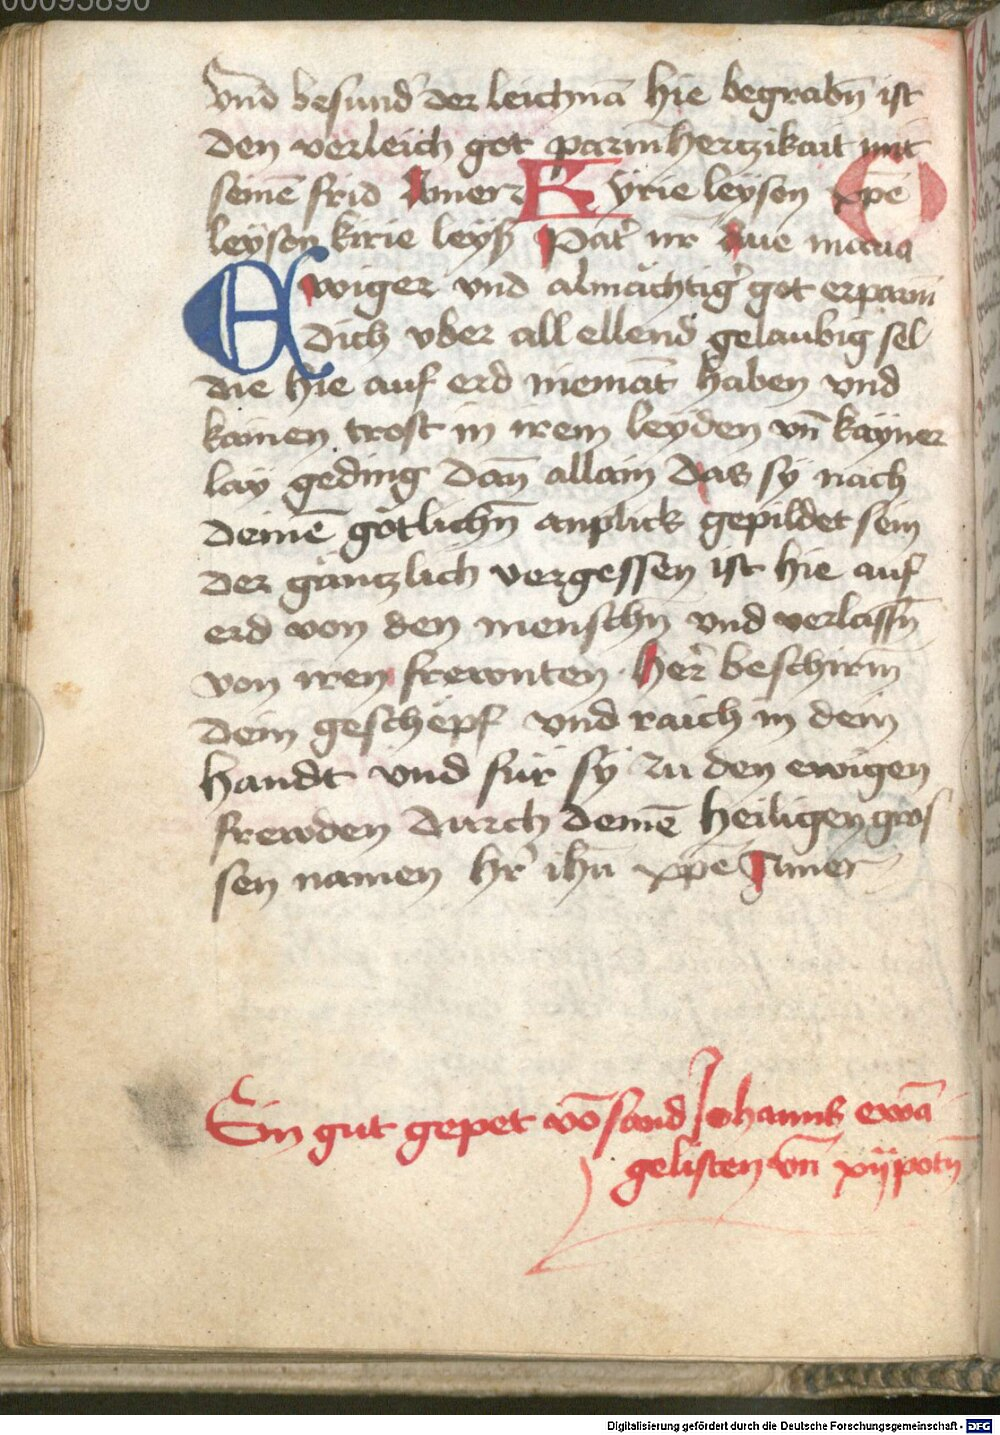 00095890
vnd besund̉ der leichnā hie begrabn̄ ist
den verleich got parmhertzikait mit
seinē frid Amen Kyrie leyson xp̄e
leyson kirie leyß Pat̉ nr̄ Aue maria
Ewiger vnd almächtig̉ got erparm
dich vber all ellend gelaubig sel
die hie auf erd niemāt haben vnd
kainen trost in irem leyden vn̄ kayner
lay geding dan̄ allain das sy nach
deinē gotlichn̄ anplick gepildet sein
der gäntzlich vergessen ist hie auf
erd von den menschn̄ vnd verlassn̄
von iren frewnten her̉ beschirm
dein geschepf vnd raich in dein
handt vnd für sy zu den ewigen
frewden durch deinē heiligen gros
sen namen hr̉ ihū xp̄e Amen
Ein gut gepet vō sand Johanns ewā
gelisten vn̄ xij potn̄
Digitalisierung gefördert durch die Deutsche Forschungsgemeinschaft - DFG